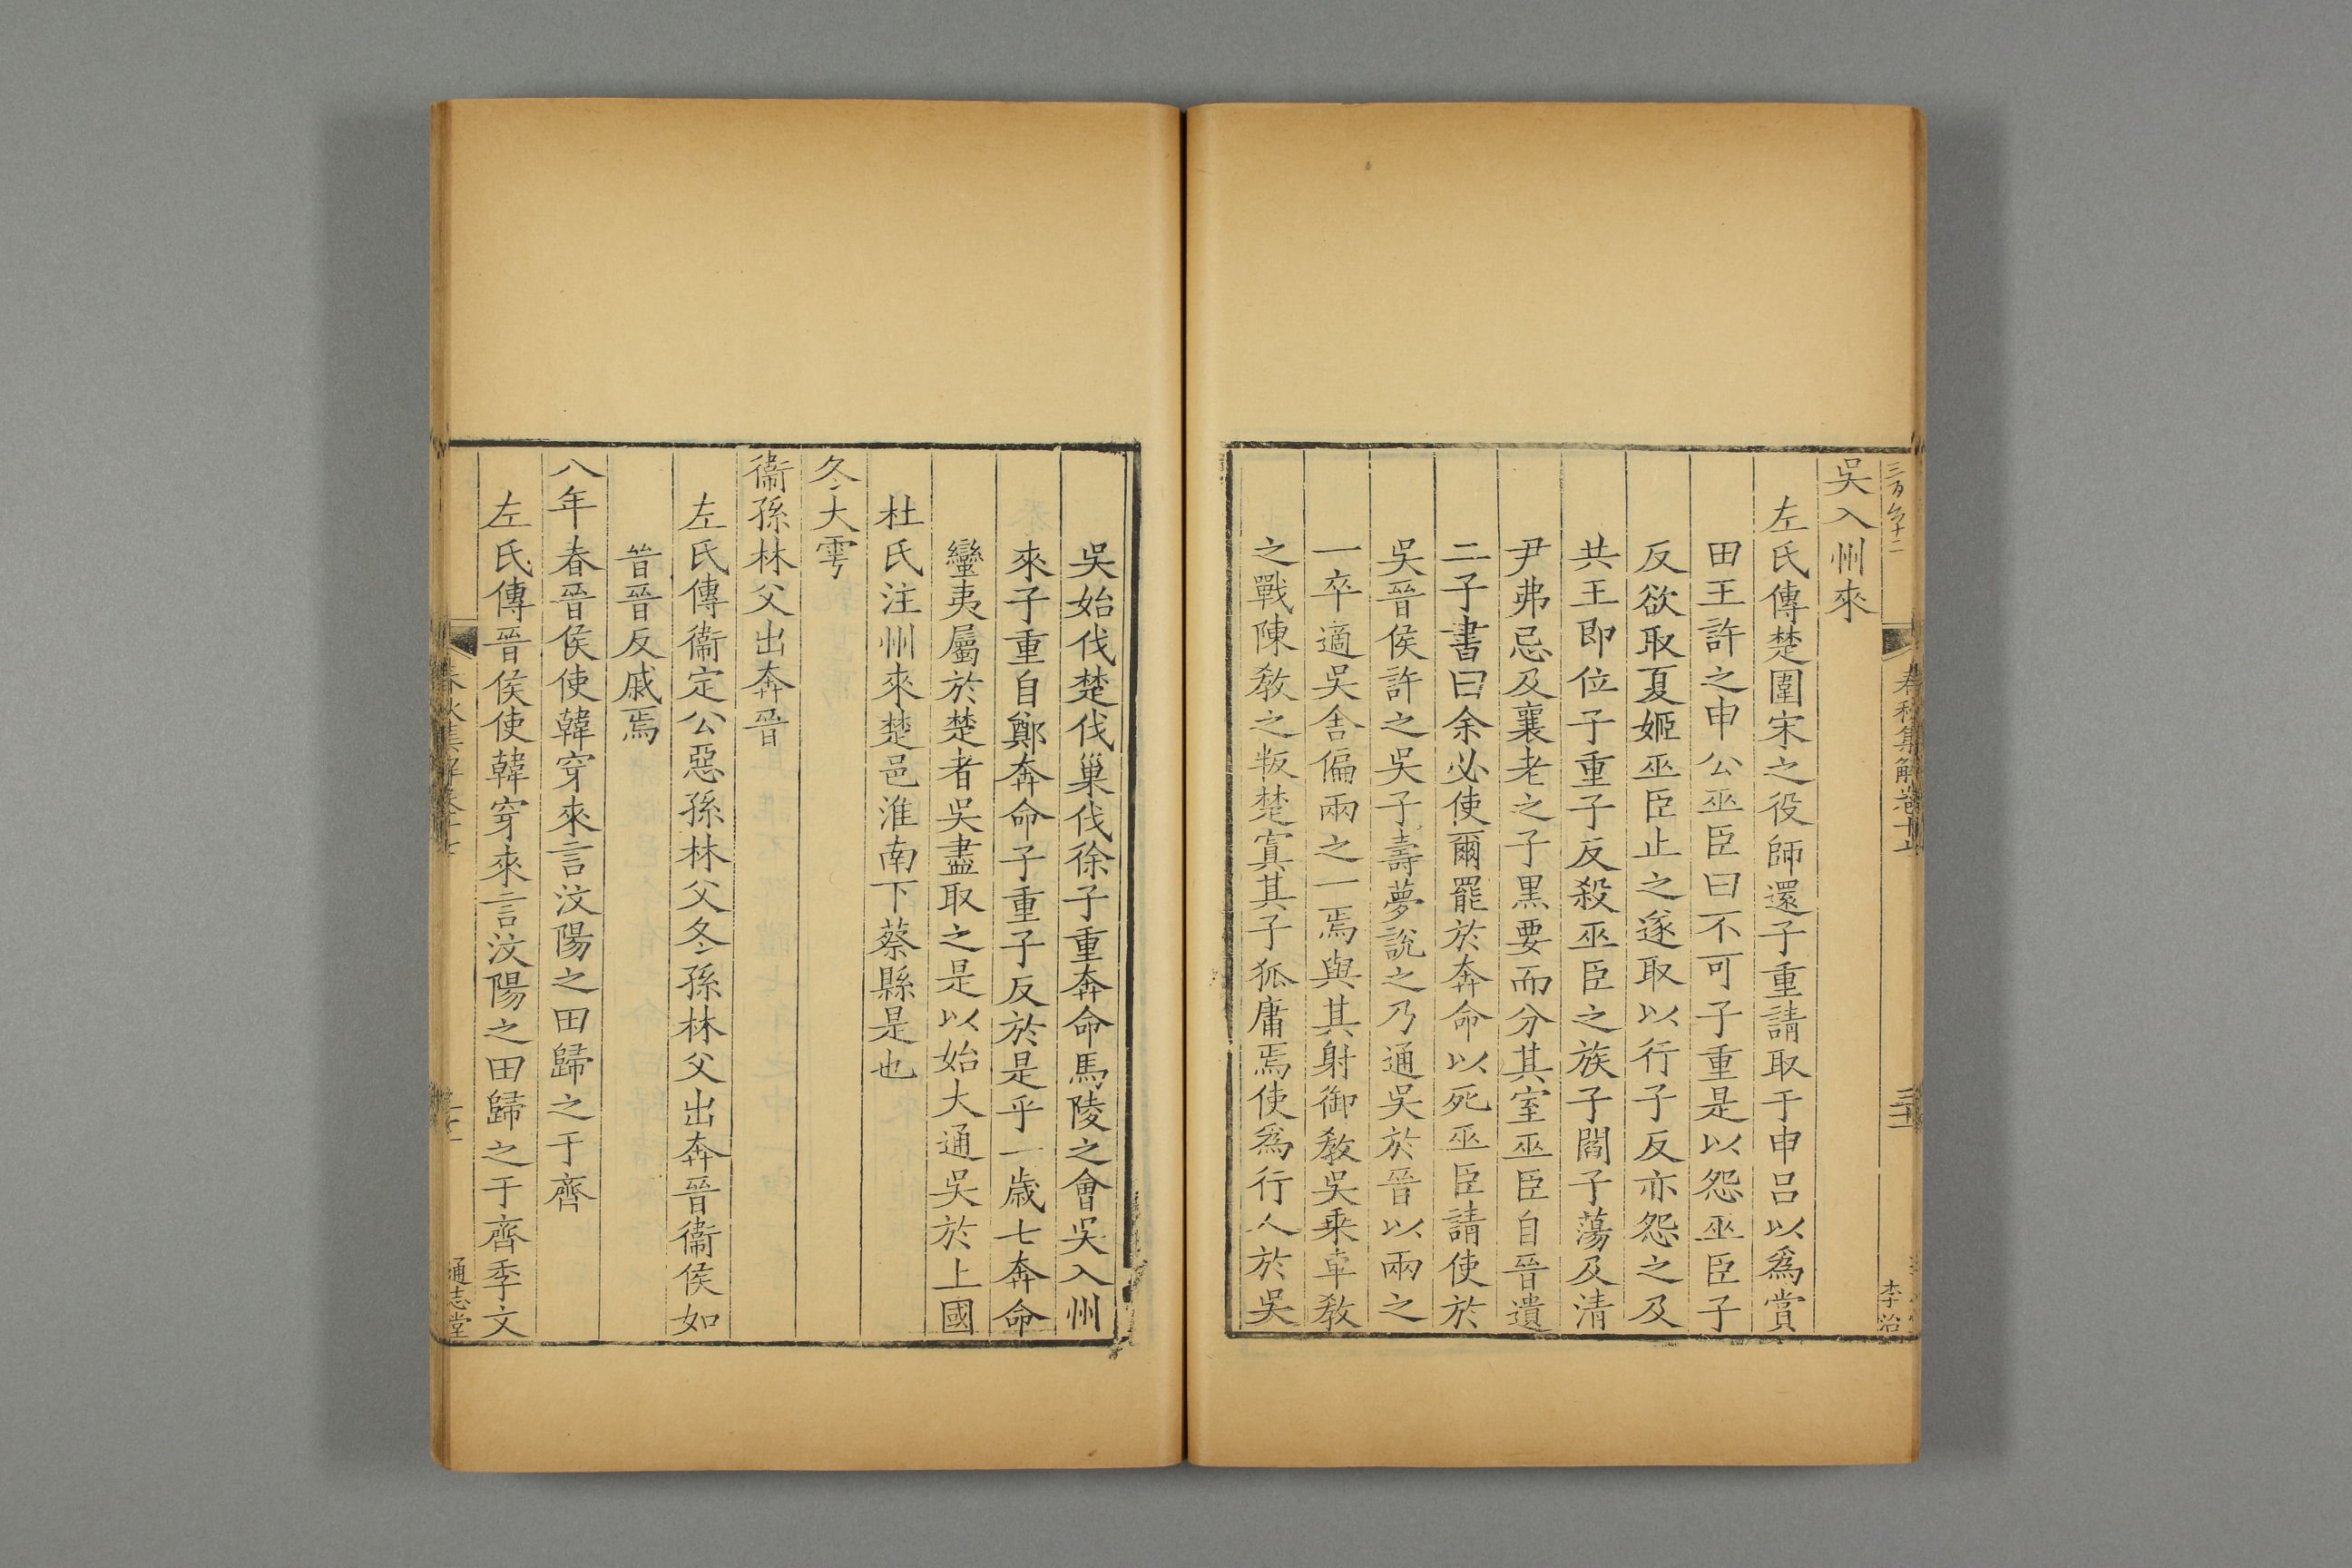 春秋集解卷十七
李治
吳入州來
左氏傳楚圍宋之役師還子重請取于申呂以爲賞
田王許之申公巫臣曰不可子重是以怨巫臣子
反欲取夏姬巫臣止之遂取以行子反亦怨之及
共王即位子重子反殺巫臣之族子閻子蕩及清
尹弗忌及襄老之子黑要而分其室巫臣自晉遺
二子書曰余必使爾罷於奔命以死巫臣請使於
吳晉侯許之吳子壽夢說之乃通吳於晉以兩之
一卒適吳舍偏兩之一焉與其射御敎吳乗車敎
之戰陳敎之叛楚寘其子狐庸焉使爲行人於吳
吳始伐楚伐巢伐徐子重奔命馬陵之會吳入州
來子重自鄭奔命子重子反於是乎一歳七奔命
蠻夷屬於楚者吳盡取之是以始大通吳於上國
杜氏注州來楚邑淮南下蔡縣是也
冬大雩
衞孫林父出奔晉
左氏傳衞定公惡孫林父冬孫林父出奔晉衞侯如
晉晉反戚焉
八年春晉侯使韓穿來言汶陽之田歸之于齊
左氏傳晉侯使韓穿來言汶陽之田歸之于齊季文
通志堂